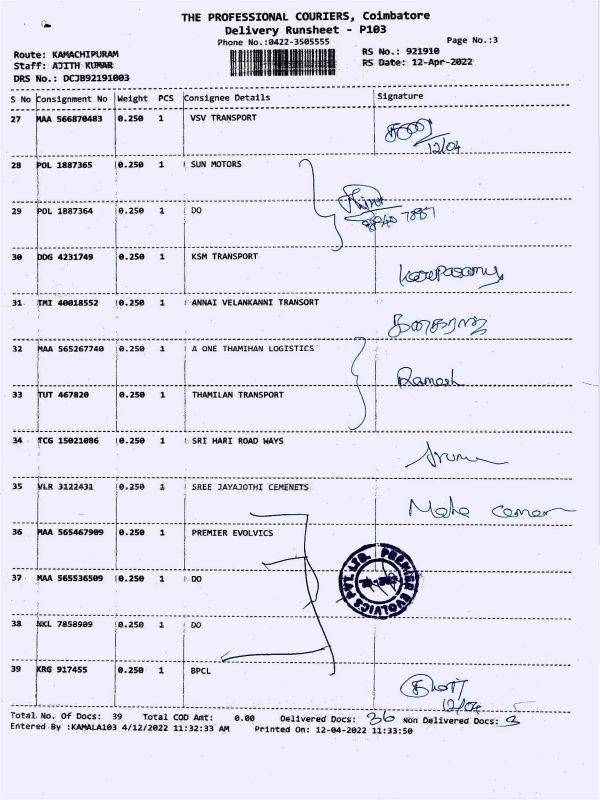 THE PROFESSIONAL COURIERS, Coimbatore
Delivery Runsheet - P103
Phone No.:0422-3505555
Page No.:3
Route: KAMACHIPURAM
RS No.: 921910
Staff: AJITH KUMAR
RS Date: 12-Apr-2022
DRS No.: DCJB92191003
S No Consignment No Weight PCS Consignee Details Signature
27 MAA 566870483 0.250 1 VSV TRANSPORT
12/04
28 POL 1887365 0.250 1 SUN MOTORS
29 POL 1887364 0.250 1 DO
30 DDG 4231749 0.250 1 KSM TRANSPORT
31 TMI 40018552 0.250 1 ANNAI VELANKANNI TRANSORT
32 MAA 565267740 0.250 1 A ONE THAMIHAN LOGISTICS
Ramesh
33 TUT 467820 0.250 1 THAMILAN TRANSPORT
34 TCG 15021086 0.250 1 SRI HARI ROAD WAYS
35 VLR 3122431 0.250 1 SREE JAYAJOTHI CEMENETS
36 MAA 565467909 0.250 1 PREMIER EVOLVICS
37 MAA 565536509 0.250 1 DO
PREMIER EVOLVICS PVT. LTD.
38 NKL 7858909 0.250 1 DO
39 KRG 917455 0.250 1 BPCL
12/04
Total No. Of Docs: 39 Total COD Amt: 0.00 Delivered Docs: 36 Non Delivered Docs: 3
Entered By :KAMALA103 4/12/2022 11:32:33 AM Printed On: 12-04-2022 11:33:50